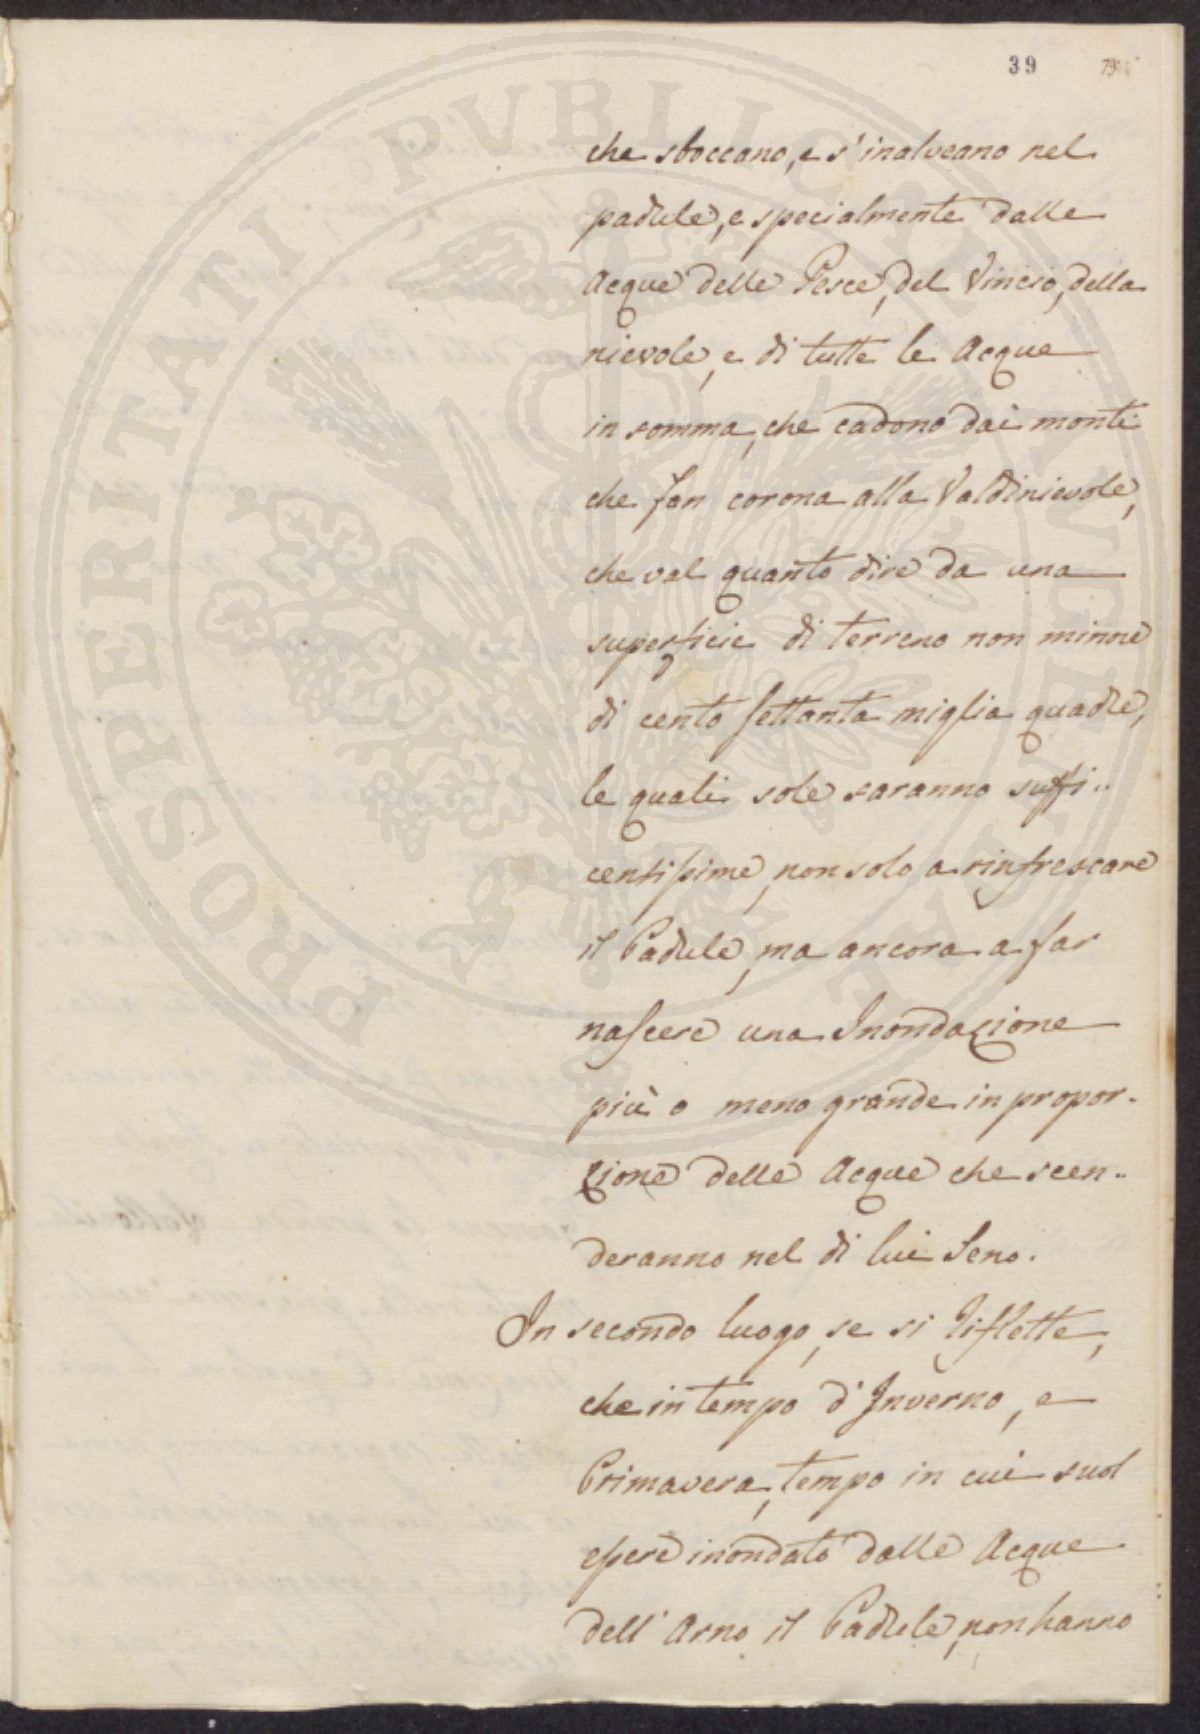 39
che sboccano, e s'inalveano nel
padule, e specialmente dalle
Acque delle Pesce, del Vincio, della
nievole, e di tutte le Acque
in somma, che cadono dai monti
che fan corona alla Valdinievole,
che val quanto dire da una
superficie di terreno non minore
di cento settanta miglia quadre,
le quali sole saranno suffi..
centissime, non solo a rinfrescare
il Padule, ma ancora a far
nascere una Inondazione
più o meno grande in propor-
zione delle Acque che scen..
deranno nel di lui Seno.
In secondo luogo, se si riflette,
che in tempo d'Inverno, e
Primavera, tempo in cui suol
essere inondato dalle Acque
dell'Arno il Padule, non hanno
PROSPERITATI PVBLICAE AVGENDAE